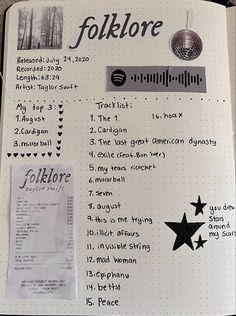 folklore
Released: July 24, 2020
Recorded: 2020
Length: 63:29
Artist: Taylor Swift
My top 3:
1. August
2. Cardigan
3. mirrorball
Tracklist:
1. The 1
2. Cardigan
3. The last great american dynasty
4. exile (feat. Bon Iver)
5. my tears ricochet
6. mirrorball
7. Seven
8. august
9. this is me trying
10. illicit affairs
11. invisible string
12. mad woman
13. epiphany
14. betty
15. Peace
16. hoax
folklore
taylor swift
you drew
stars
around
my scars